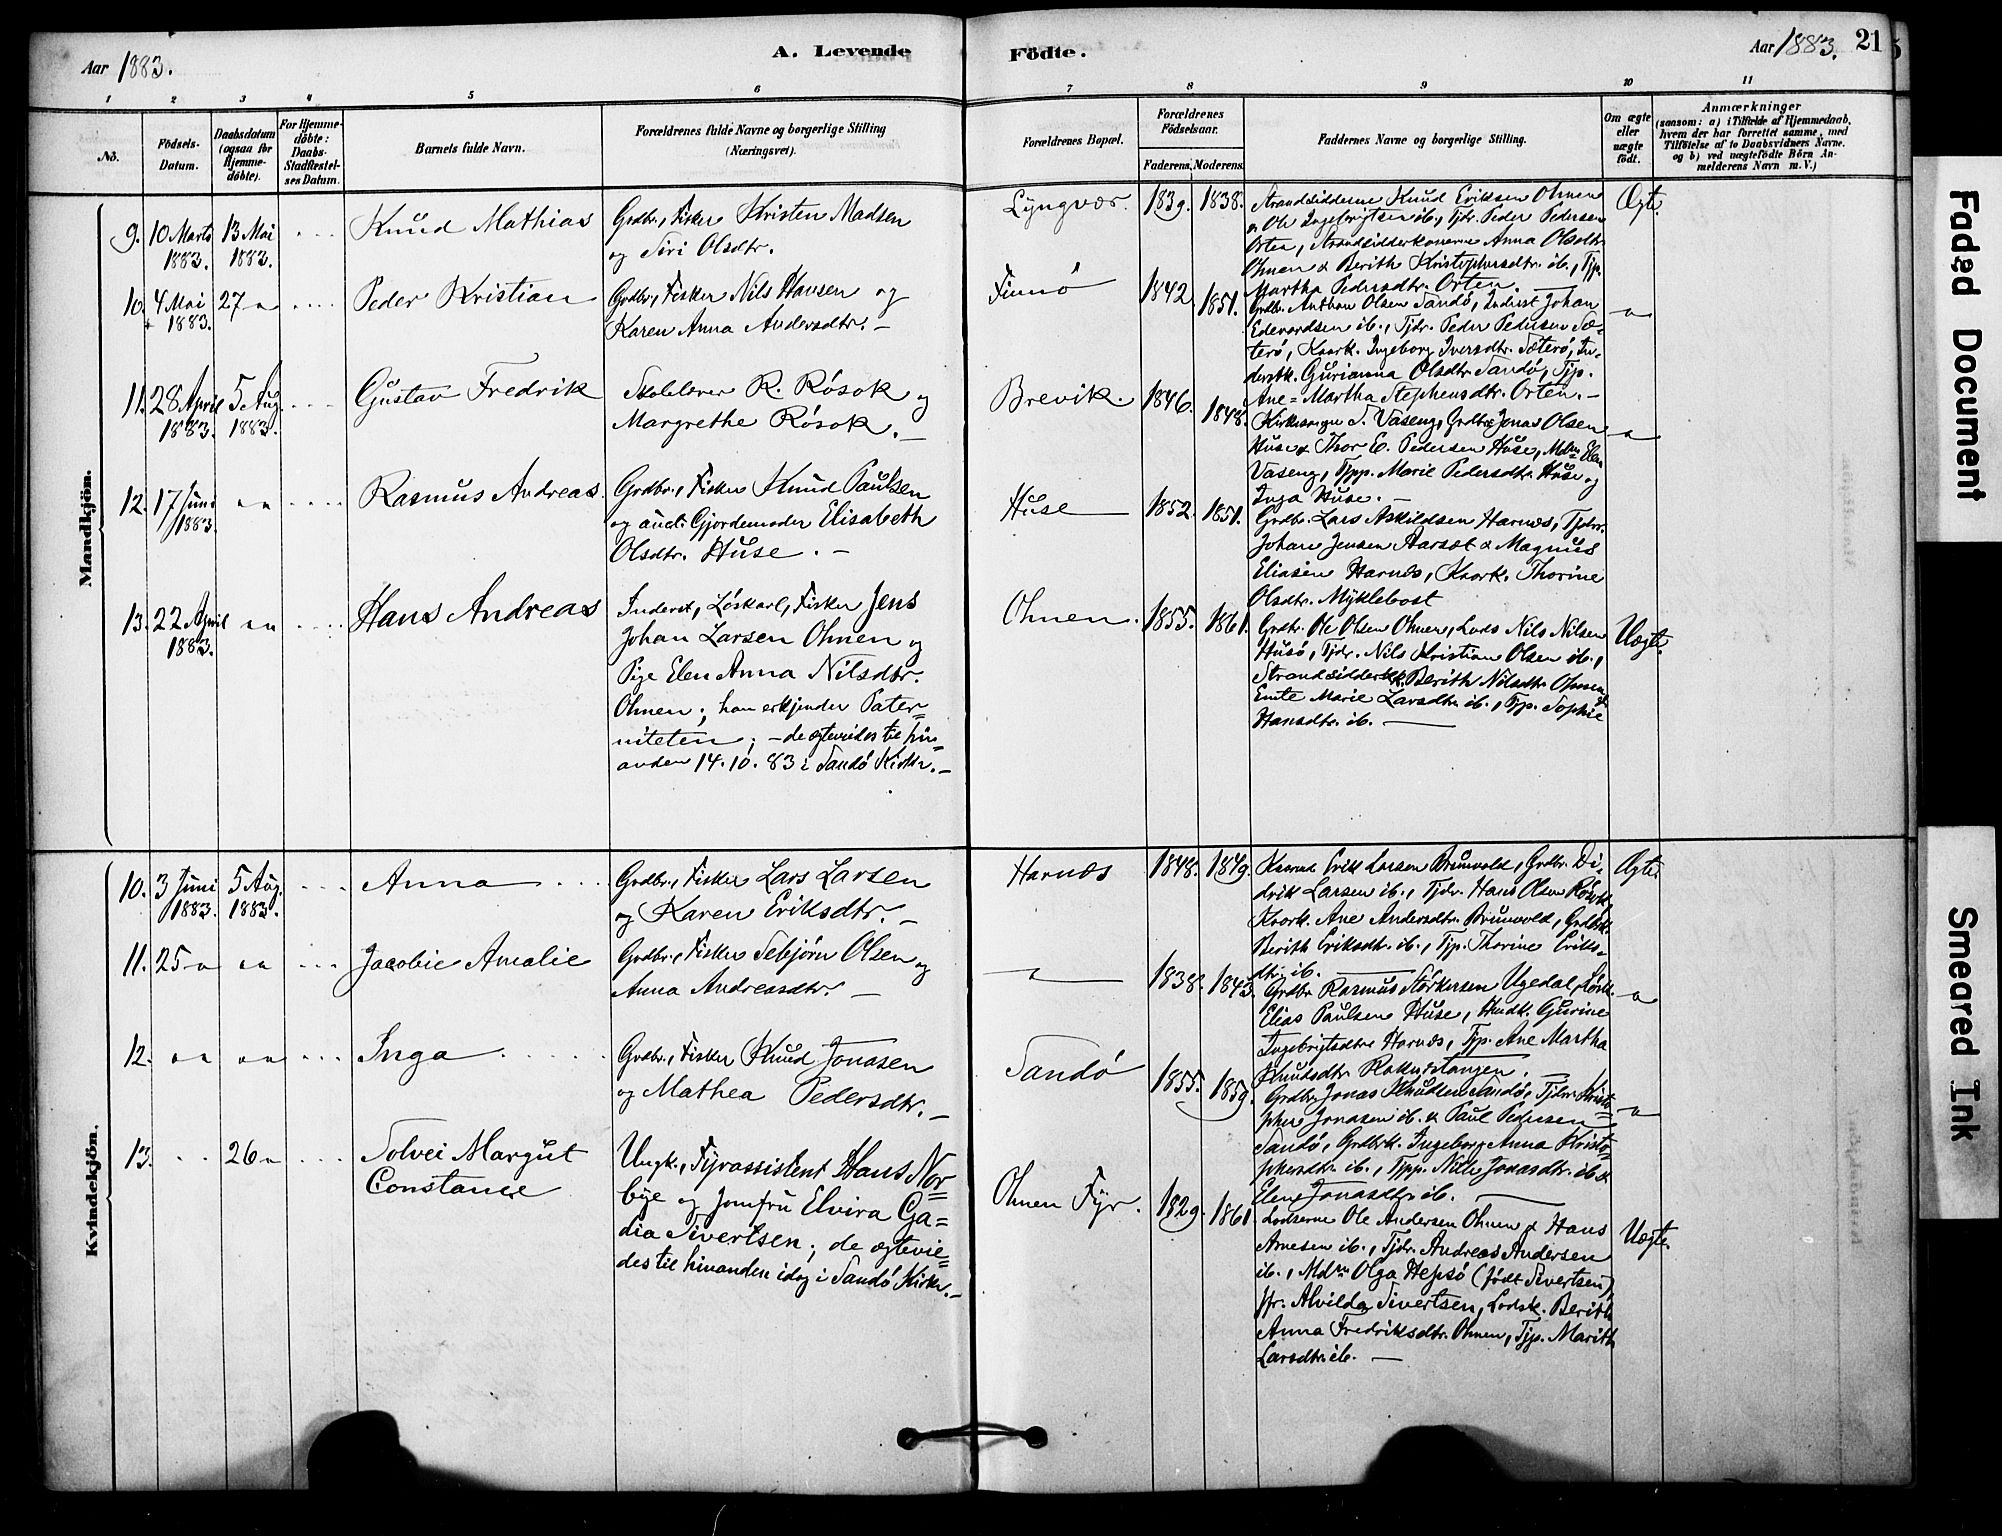 Aar 1883.
A. Levende
Födte.
Aar 1883.
21
1 2 3 4 5 6
7 8 9 10 11
No.
Födsels-
Datum.
Daabsdatum
(ogsaa for
Hjemme-
döbte).
For Hjemme-
döbte:
Daabs-
Stadfæstel-
ses Datum.
Barnets fulde Navn.
Forældrenes fulde Navne og borgerlige Stilling
(Næringsvei).
Forældrenes Bopæl.
Forældrenes
Födselsaar.
Faderens. Moderens.
Faddernes Navne og borgerlige Stilling.
Om ægte
eller
uægte
födt.
Anmærkninger
(saasom: a) i Tilfælde af Hjemmedaab,
hvem der har forrettet samme, med
Tilföielse af to Daabsvidners Navne.
og b) ved uægtefödte Börn An-
melderens Navn m. V.)
Mandkjön.
9. 10 Marts 1883. 13 Mai 1883.
Knud Mathias
Grdbr., Fisker Kristen Madsen
og Siri Olsdtr.
Lyngvær. 1839. 1838.
Strandsidderne Knud Eriksen Ohnen
& Ole Ingebrigtsen ib., Tjdr. Peder Pedersen
Orten, Strandsidderkonerne Anna Olsdtr.
Ohnen & Berith Kristophersdtr. ib., Tjp.
Martha Pedersdtr. Orten. —
Ægt.
10. 4 Mai 1883. 27 "
Peder Kristian
Grdbr., Fisker Nils Hansen og
Karen Anna Andersdtr. —
Finnö 1842 1851.
Grdbr. Anthon Olsen Sandö, Inderst Johan
Edevardsen ib., Tjdr. Peder Pedersen Sæ-
terö, Kaark. Ingeborg Iversdtr. Sæterö, In-
derstk. Gurianna Olsdtr. Sandö, Tjp.
Ane-Martha Stephensdtr. Orten. —
11. 28 April 1883. 5 Aug. 1883.
Gustav Fredrik
Skolelærer R. Rösok og
Margrethe Rösok. —
Brevik. 1846. 1848.
Kirkesanger S. Vaseng, Grdbr. Jonas Olsen
Huse & Thor E. Pedersen Huse, Mdm Elen
Vaseng, Tjpp. Marie Pedersdtr. Huse og
Inga Huse. —
12. 17 Juni 1883.
Rasmus Andreas.
Grdbr., Fisker Knud Paulsen
og Gjordemoder Elisabeth
Olsdtr. Huse. —
Huse 1852. 1851.
Grdbr. Lars Askildsen Harnæs, Tjdr.
Johan Jensen Aarsæt & Magnus
Eliasen Harnæs, Kaark. Thorine
Olsdtr. Myklebost
13. 22 April 1883.
Hans Andreas
Inderst, Löskarl, Fisker Jens
Johan Larsen Ohnen og
Pige Elen Anna Nilsdtr.
Ohnen; han erkjender Pater-
niteten; — de ægteviedes til hin-
anden 14.10.83 i Sandö Kirke. —
Ohnen. 1855. 1861.
Grdbr. Ole Olsen Ohnen, Lods Nils Nilsen
Husö, Tjdr. Nils Kristian Olsen ib.,
Strandsidderk. Berith Nilsdtr. Ohnen,
Enke Marie Larsdtr. ib., Tjp. Sophie
Hansdtr. ib. —
Uægt.
Kvindekjön.
10. 3 Juni 1883. 5 Aug. 1883.
Anna
Grdbr., Fisker Lars Larsen
og Karen Eriksdtr. —
Harnæs 1848. 1849.
Kaarmd. Erik Larsen Brunvold, Grdbr. Di-
drik Larsen ib., Tjdr. Hans Olsen Rösok,
Kaark. Ane Andersdtr. Brunvold, Grdbrk.
Berith Eriksdtr. ib., Tjp. Thorine Eriks-
dtr. ib. —
Ægte.
11. 25 "
Jacobie Amalie
Grdbr., Fisker Sebjörn Olsen og
Anna Andreasdtr. —
1838. 1843.
Grdbr. Rasmus Störkersen Ugedal, Lösk.
Elias Paulsen Huse, Husk. Gurine
Ingebrigtsdtr. Harnæs, Tjp. Ane Martha
Knudsdtr. Rakvaagen. —
12.
Inga
Grdbr., Fisker Knud Jonasen
og Mathea Pedersdtr. —
Sandö 1855. 1859.
Grdbr. Jonas Knudsen Sandö, Tjdr. Kristo-
pher Jonasen ib. & Paul Pedersen
Sandö, Grdbrk. Ingeborg Anna Kristo-
phersdtr. ib., Tjpp. Jonasdtr. ib. &
Elen Jonasdtr. ib. —
13. 26 "
Solvei Margut
Constance
Ungk., Fyrassistent Hans Nor-
bye og Jomfru Elvira Ga-
dia Sivertsen; de ægtevie-
des til hinanden idag i Sandö Kirke. —
Ohnen Fyr. 1829. 1861
Lodserne Ole Andersen Ohnen & Hans
Arnesen ib., Tjdr. Andreas Andersen
ib., Mdm Olga Hepsö (födt Sivertsen),
Jfr. Alvilda Sivertsen, Lodsk. Berith
Anna Fredriksdtr. Ohnen, Tjp. Marith
Larsdtr. ib. —
Uægte.
Faded Document
Smeared Ink